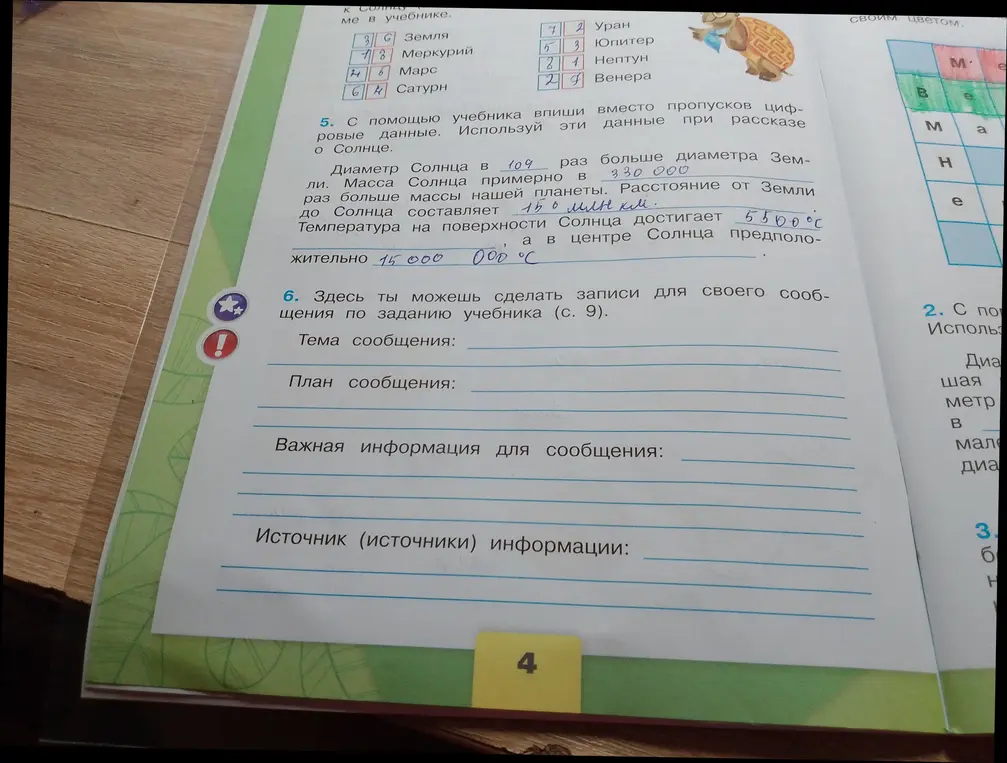 ме в учебнике.
3 6 Земля
1 8 Меркурий
4 5 Марс
6 4 Сатурн
7 2 Уран
5 3 Юпитер
8 1 Нептун
2 7 Венера
5. С помощью учебника впиши вместо пропусков циф-
ровые данные. Используй эти данные при рассказе
о Солнце.
Диаметр Солнца в 109 раз больше диаметра Зем-
ли. Масса Солнца примерно в 330 000
раз больше массы нашей планеты. Расстояние от Земли
до Солнца составляет 150 млн км.
Температура на поверхности Солнца достигает 5500°C
, а в центре Солнца предполо-
жительно 15000 000°C .
6. Здесь ты можешь сделать записи для своего сооб-
щения по заданию учебника (с. 9).
Тема сообщения:
План сообщения:
Важная информация для сообщения:
Источник (источники) информации:
4
своим цветом.
М е
В е
М а
Н
е
2. С по
Использ
Диа
шая
метр
в
мал
диа
3.
б
н